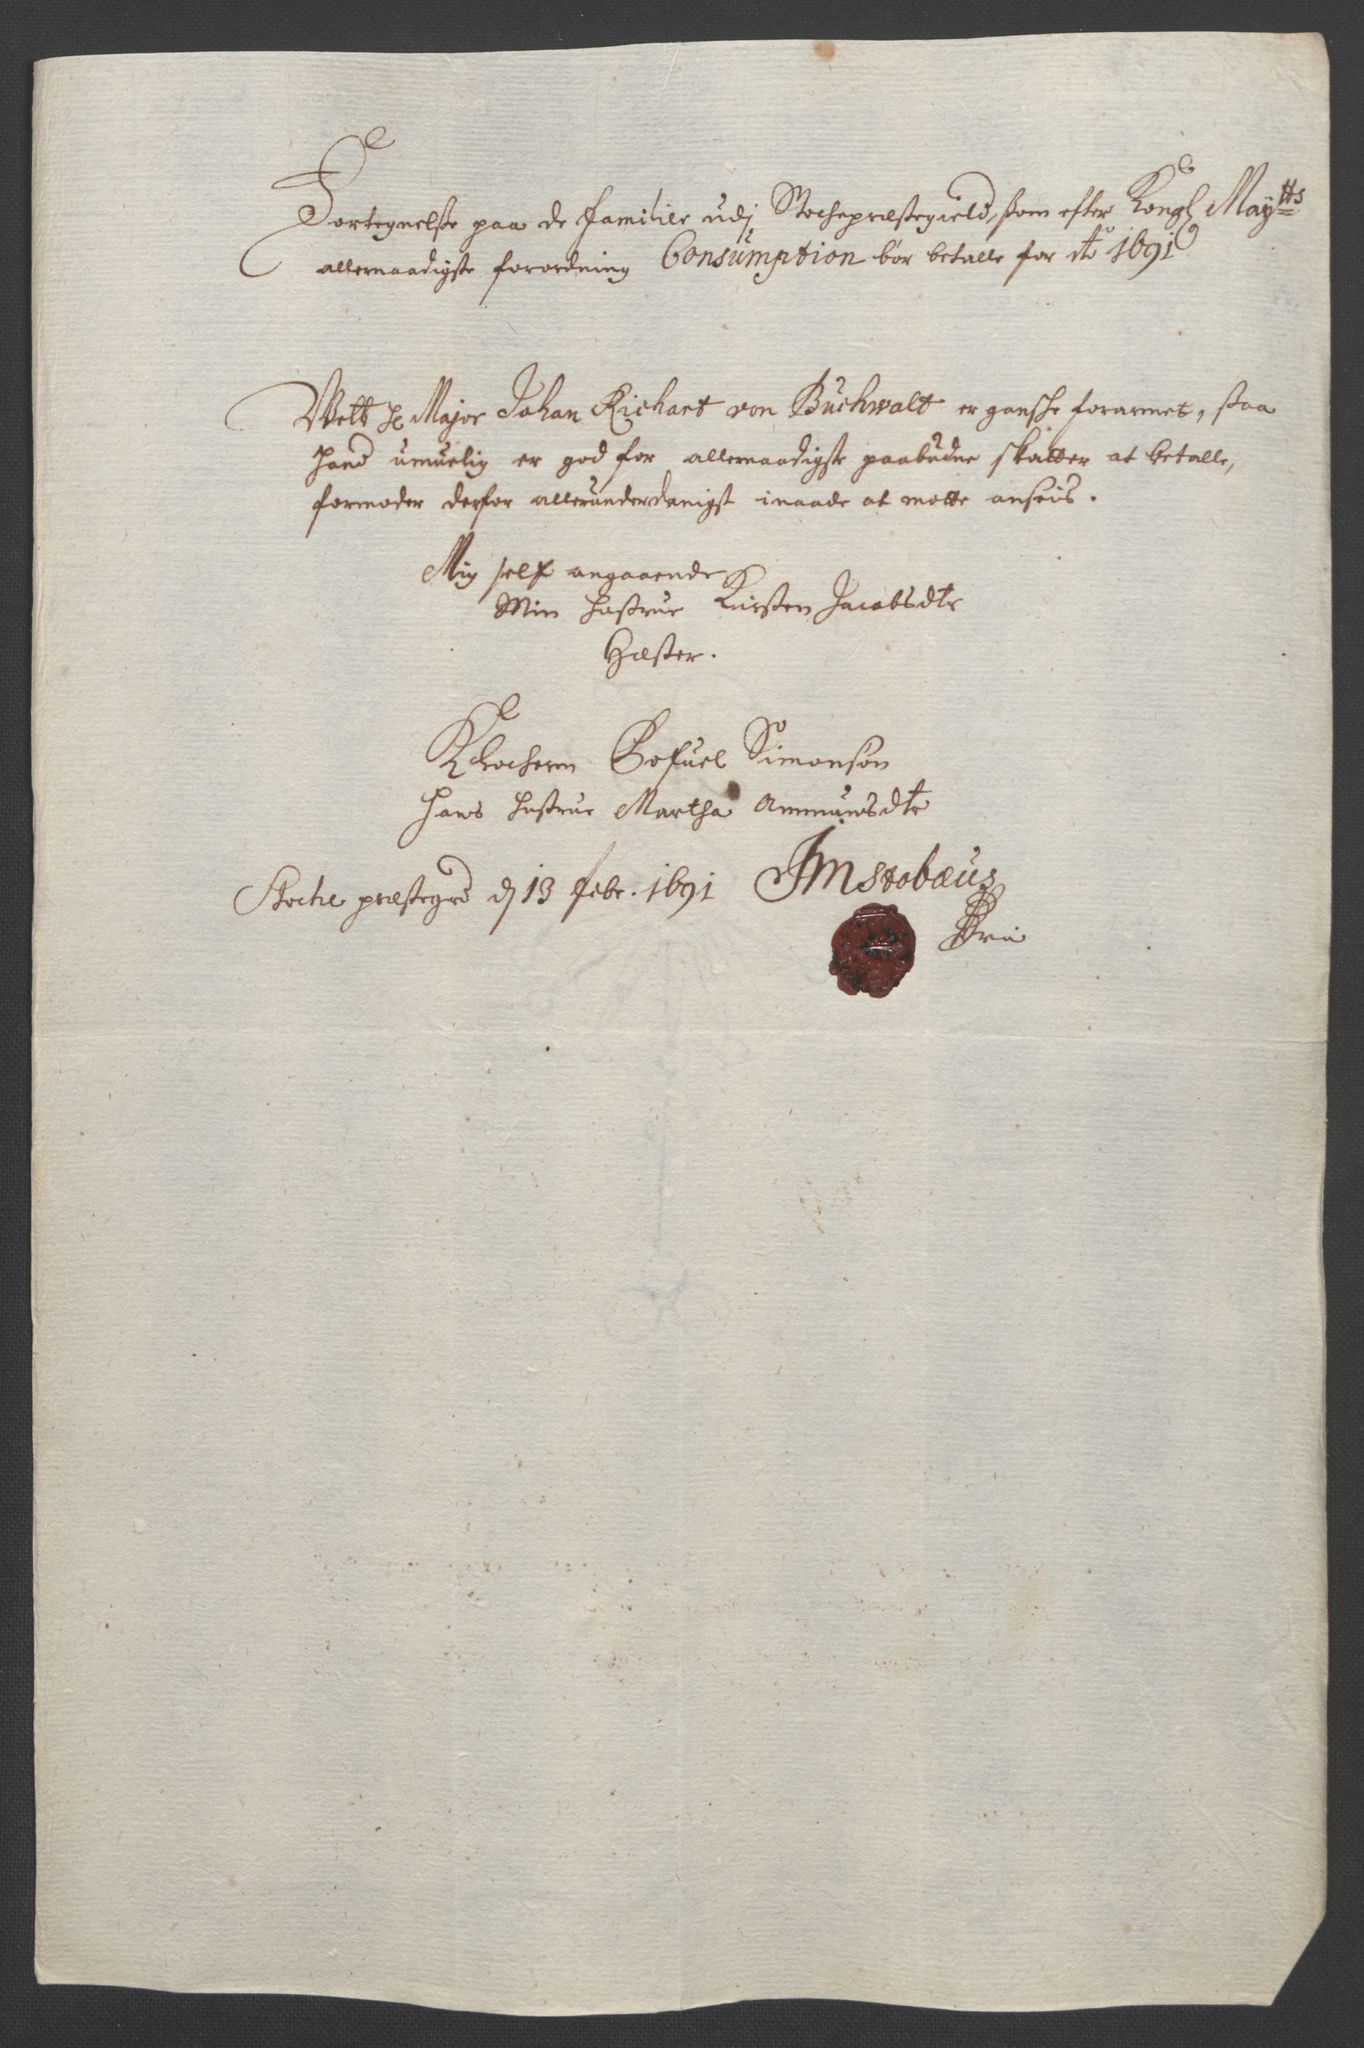 Fortegnelse paa de familier udj Stochepræstegield, som efter Kongl Maytts
allernaadigste forordning Consumption bør betalle for dto 1691
Welb H Major Johan Richart von Buchwalt er gansche forarmet, saa
hand umuelig er god for allernaadigste paabudne skatter at betalle,
formoder derfor allerunderdanigst i naade at motte ansees.
Mig self angaaende
Min hustrue Kirsten Jacobsdtr
Hæster.
Klocheren Simonsøn
Hans hustrue Martha Ammundsdtr
Stoche præstegrd d 13 febr. 1691 JMStobæus